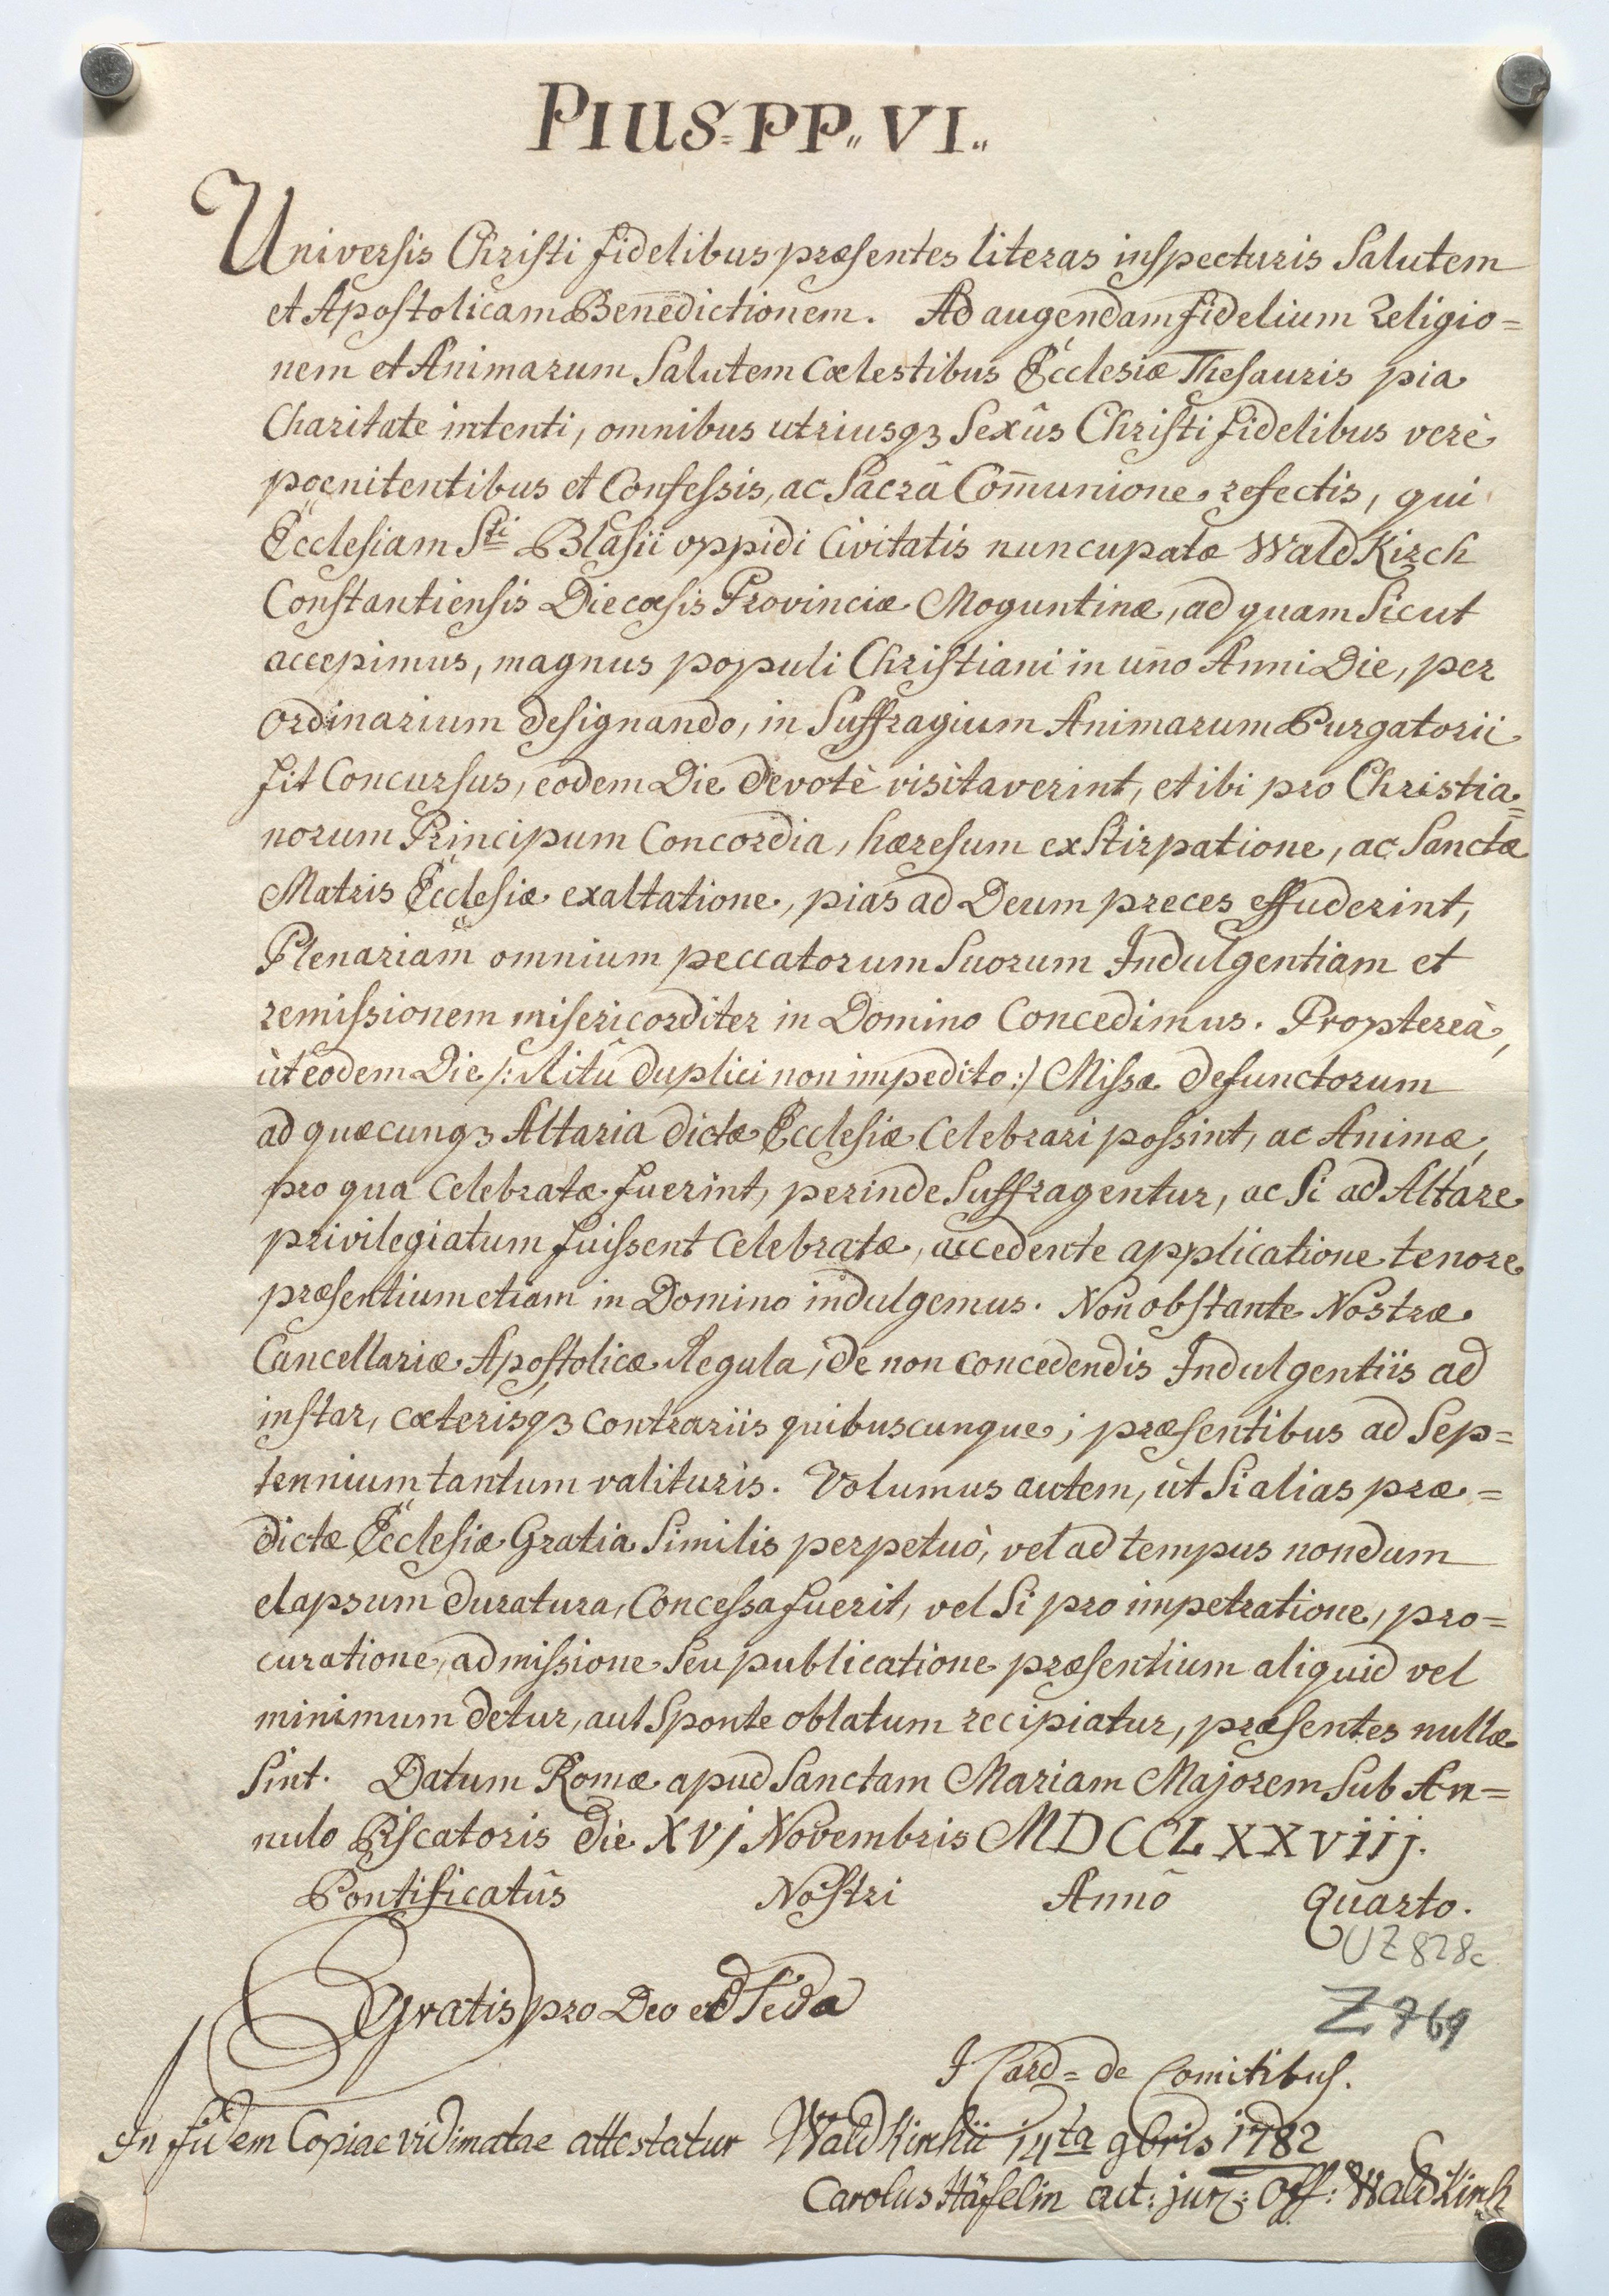 PIUS = PP„ VI„
Universis Christi fidelibus præsentes literas inspecturis Salutem
et Apostolicam Benedictionem. Ad augendam fidelium Religio=
nem et Animarum Salutem Cœlestibus Ecclesiæ Thesauris pia
Charitate intenti, omnibus utriusqȝ Sexûs Christi fidelibus verè
pœnitentibus et Confessis, ac Sacrâ Com̄unione refectis, qui
Ecclesiam Sti Blasii oppidi Civitatis nuncupatæ WaldKirch
Constantiensis Diecœsis Provinciæ Moguntinæ, ad quam Sicut
accepimus, magnus populi Christiani in uno Anni Die, per
Ordinarium designando, in Suffragium Animarum Purgatorii
fit Concursus, eodem Die devotè visitaverint, et ibi pro Christia=
norum Principum Concordia, hæresum exStirpatione, ac Sanctæ
Matris Ecclesiæ exaltatione, pias ad Deum preces effuderint,
Plenariam omnium peccatorum Suorum Indulgentiam et
remissionem misericorditer in Domino Concedimus. Proptereà,
ùt eodem Die /: Ritû duplici non impedito :/ Missæ defunctorum
ad quæcunqȝ Altaria dictæ Ecclesiæ Celebrari possint, ac Animæ,
pro qua Celebratæ fuerint, perinde Suffragentur, ac Si ad Altare
privilegiatum fuissent Celebratæ, accedente applicatione tenore
præsentium etiam in Domino indulgemus. Non obstante Nostræ
Cancellariæ Apostolicæ Regula, de non concedendis Indulgentiis ad
instar, cæterisqȝ Contrariis quibuscunque; præsentibus ad Sep=
tennium tantum valituris. Volumus autem, ùt Si alias præ=
dictæ Ecclesiæ Gratia Similis perpetuò, vel ad tempus nondum
elapsum duratura, Concessa fuerit, vel Si pro impetratione, pro=
curatione, admissione Seu publicatione præsentium aliquid vel
minimum detur, aut Sponte oblatum recipiatur, præsentes nullæ
Sint. Datum Romæ apud Sanctam Mariam Majorem Sub An=
nulo Piscatoris die XVj Novembris MDCCLXXViij.
Pontificatûs Nostri Anno Quarto.
UZ 828c
Gratis pro Deo et
Z 769
I Card = de Comitibus.
In fidem Copiae vidimatae attestatur WaldKirchii 14ta 9bris 1782
Carolus Häfelin act: jur: Off: WaldKirch